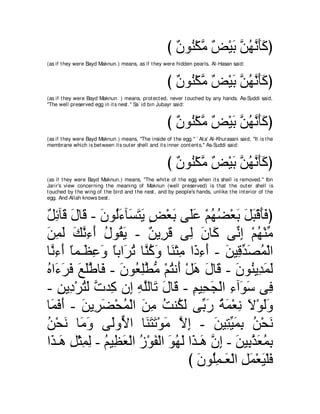 ﴿كَأَنَّهُنَّ بَيْضٌ مَّكْنُونٌ ﴾
(as if they were Bayd Maknun.) means, as if they were hidden pearls. Al-Hasan said:
﴿كَأَنَّهُنَّ بَيْضٌ مَّكْنُونٌ ﴾
(as if they were Bayd Maknun. ) means, protected, never touched by any hands. As-Suddi said, "The well preserved egg in its nest." Sa`id bin Jubayr said:
﴿كَأَنَّهُنَّ بَيْضٌ مَّكْنُونٌ ﴾
(as if they were Bayd Maknun.) means, "The inside of the egg." `Ata' Al-Khurasani said, "It is the membrane which is between its outer shell and its inner contents." As-Suddi said:
﴿كَأَنَّهُنَّ بَيْضٌ مَّكْنُونٌ ﴾
(as if they were Bayd Maknun.) means, "The white of the egg when its shell is removed." Ibn Jarir's view concerning the meaning of Maknun (well preserved) is that the outer shell is touched by the wing of the bird and the nest, and by people's hands, unlike the interior of the egg. And Allah knows best.
﴿فَأَقْبَلَ بَعْضُهُمْ عَلَى بَعْضٍ يَتَسَآءَلُونَ - قَالَ قَآئِلٌ
مِّنْهُمْ إِنِّى كَانَ لِى قَرِينٌ - يَقُولُ أَءِنَّكَ لَمِنَ
الْمُصَدِّقِينَ - أَءِذَا مِتْنَا وَكُنَّا تُرَاباً وَعِظَـماً أَءِنَّا
لَمَدِينُونَ - قَالَ هَلْ أَنتُمْ مُّطَّلِعُونَ - فَاطَّلَعَ فَرَءَاهُ
فِى سَوَآءِ الْجَحِيمِ - قَالَ تَاللَّهِ إِن كِدتَّ لَتُرْدِينِ -
وَلَوْلاَ نِعْمَةُ رَبِّى لَكُنتُ مِنَ الْمُحْضَرِينَ - أَفَمَا
نَحْنُ بِمَيِّتِينَ - إِلاَّ مَوْتَتَنَا الاٍّولَى وَمَا نَحْنُ
بِمُعَذَّبِينَ - إِنَّ هَـذَا لَهُوَ الْفَوْزُ الْعَظِيمُ - لِمِثْلِ هَـذَا
فَلْيَعْمَلِ الْعَـمِلُونَ ﴾